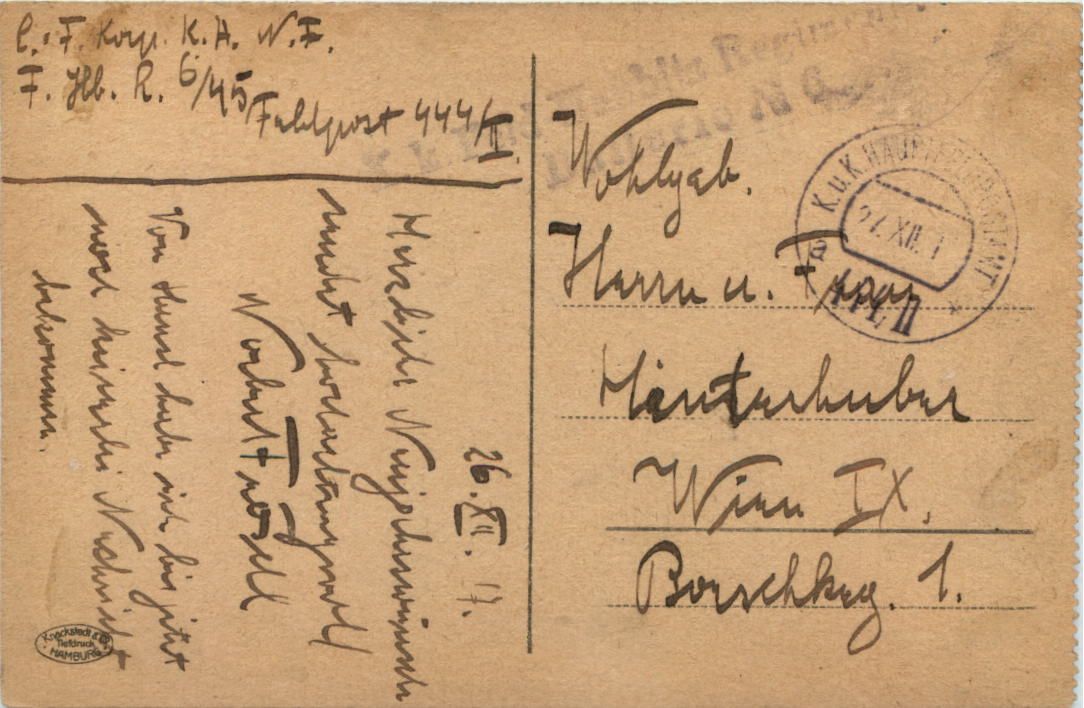 E. F. Korp. K. H. N. F.
F. Hb. R. 6/45
Feldpost 444/II.
26.XII. 17.
Herzliche Neujahrswünsche
sendet hochachtungsvoll
Norbert
Von Hansl habe ich bis jetzt
noch keinerlei Nachricht
bekommen.
Wohlgeb.
Herrn u. Frau
Hinterhuber
Wien IX.
Borschkeg. 1.
K.u.K. HAUPTFELDPOSTAMT
27.XII.
444 II
Regiment
Knackstedt & Co.
Tiefdruck
HAMBURG